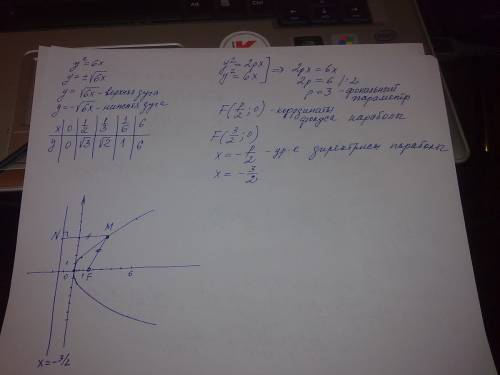 y² = 6x
y = ±√6x
y = √6x - верхняя дуга
y = -√6x - нижняя дуга
x 0 1/2 1/3 1/6 6
y 0 √3 √2 1 6
y² = 2px
y² = 6x ] ⇒ 2px = 6x
2p = 6 |:2
p = 3 - фокальный параметр
F(p/2; 0) - координаты фокуса параболы
F(3/2; 0)
x = -p/2 - ур-е директрисы параболы
x = -3/2
N 3 M
1
0 1 F 6
x = -3/2